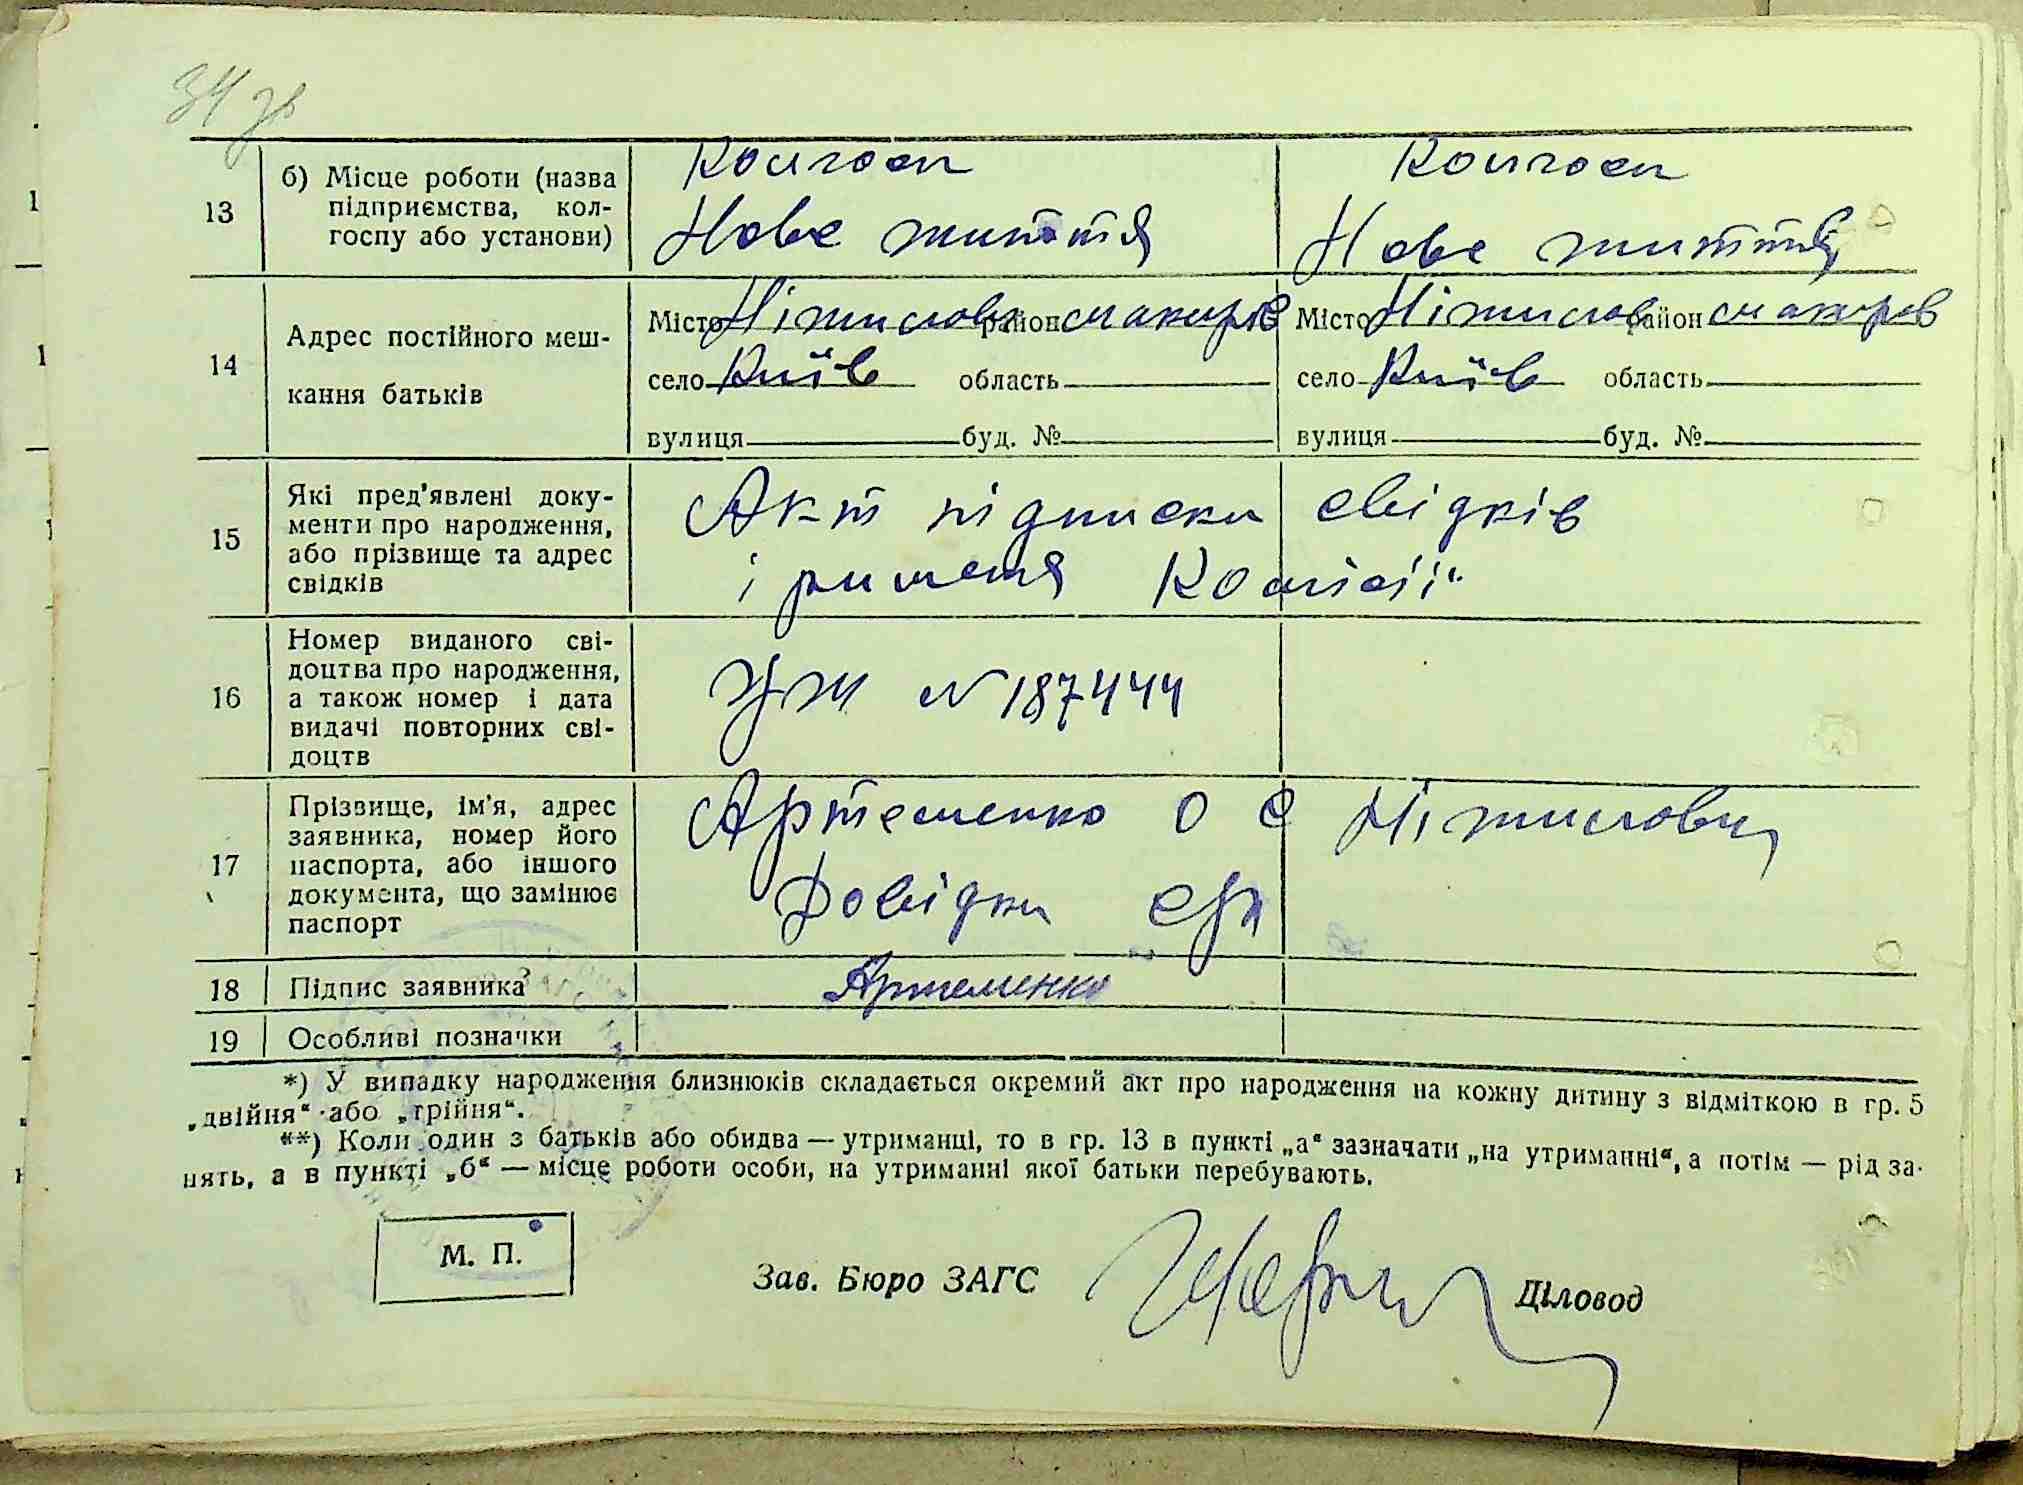 34 зв
13
б) Місце роботи (назва підприємства, колгоспу або установи)
Колгосп
Нове життя
Колгосп
Нове життя
14
Адрес постійного мешкання батьків
Місто Ніжиловк район Макарів
село Київ область
вулиця буд. №
Місто Ніжилов район Макаров
село Київ область
вулиця буд. №
15
Які пред'явлені доку-
менти про народження,
або прізвище та адрес
свідків
Акт підписки свідків
і ришення Комісії
16
Номер виданого сві-
доцтва про народження,
а також номер і дата
видачі повторних сві-
доцтв
УЖ № 187444
17
Прізвище, ім'я, адрес
заявника, номер його
паспорта, або іншого
документа, що замінює
паспорт
Артеменко О Є Ніжиловку
Довідки с/р
18
Підпис заявника
Артеменко
19
Особливі позначки
*) У випадку народження близнюків складається окремий акт про народження на кожну дитину з відміткою в гр. 5
„двійня“ або „трійня“.
**) Коли один з батьків або обидва — утриманці, то в гр. 13 в пункті „а“ зазначати „на утриманні“, а потім — рід за-
нять, а в пункті „б“ — місце роботи особи, на утриманні якої батьки перебувають.
М. П.
Зав. Бюро ЗАГС
Діловод